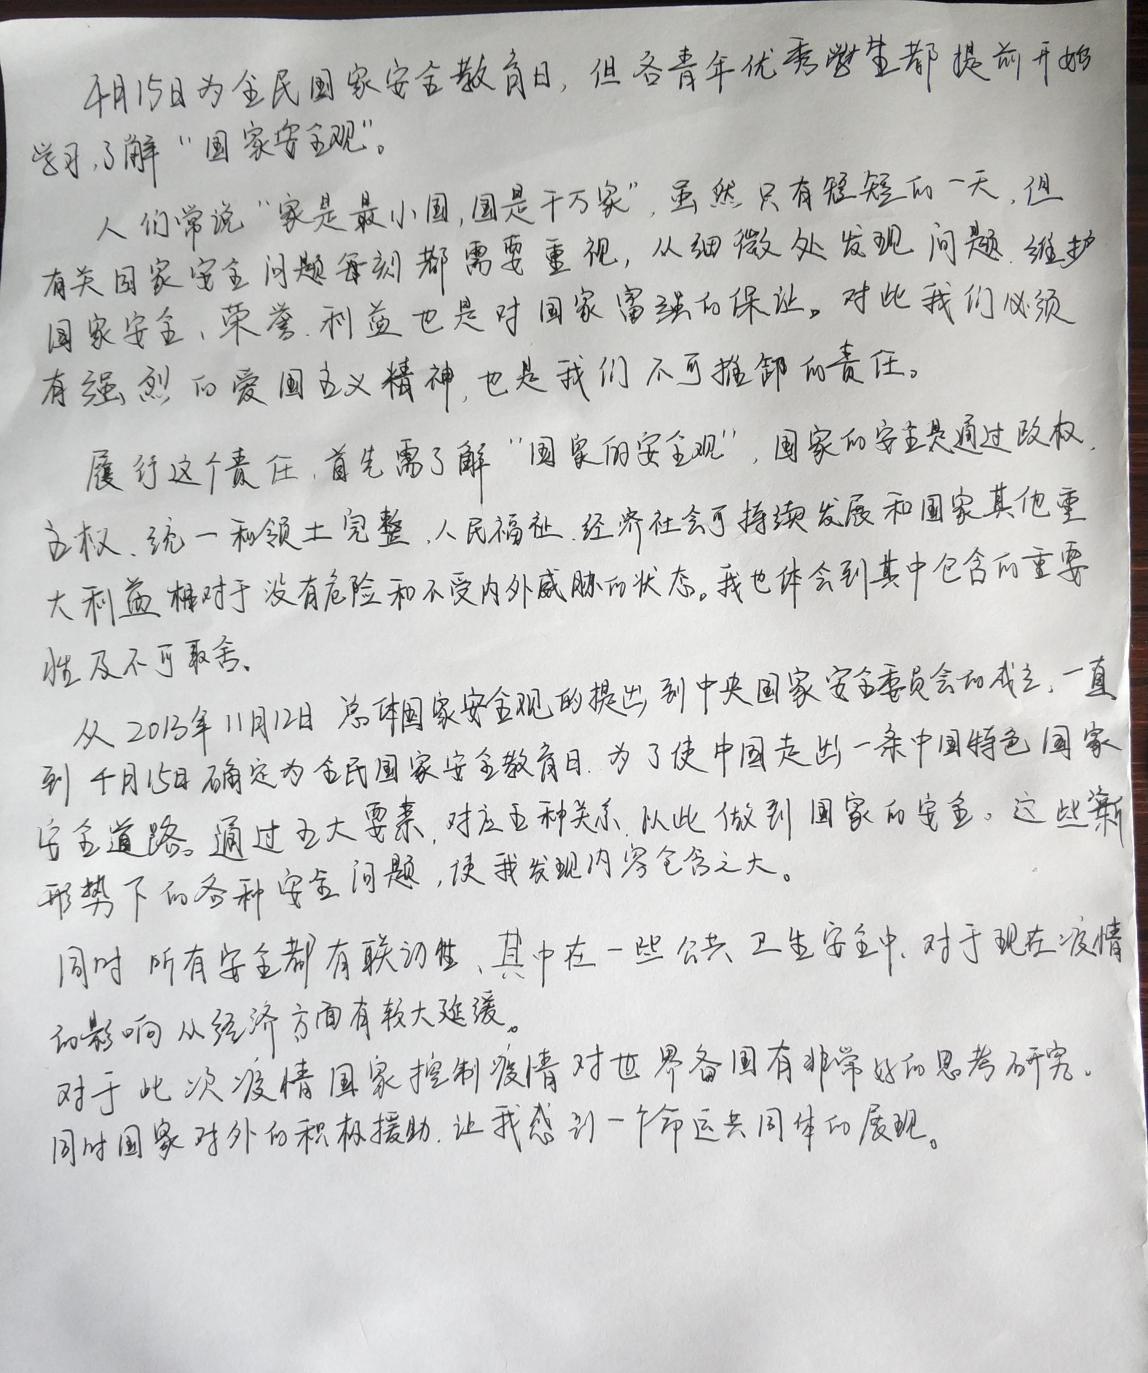 4月15日为全民国家安全教育日，但各青年优秀学生都提前开始
学习、了解“国家安全观”。
人们常说“家是最小国，国是千万家”，虽然只有短短的一天，但
有关国家安全问题每刻都需要重视，从细微处发现问题、维护
国家安全、荣誉、利益也是对国家富强的保证。对此我们必须
有强烈的爱国主义精神，也是我们不可推卸的责任。
履行这个责任，首先需了解“国家的安全观”，国家的安全是通过政权、
主权、统一和领土完整、人民福祉、经济社会可持续发展和国家其他重
大利益相对于没有危险和不受内外威胁的状态。我也体会到其中包含的重要
性及不可取舍。
从2013年11月12日总体国家安全观的提出到中央国家安全委员会的成立，一直
到4月15日确定为全民国家安全教育日，为了使中国走出一条中国特色国家
安全道路。通过五大要素，对应五种关系，以此做到国家的安全。这些新
形势下的各种安全问题，使我发现内容包含之大。
同时所有安全都有联动性、其中在一些公共卫生安全中，对于现在疫情
的影响从经济方面有较大延缓。
对于此次疫情国家控制疫情对世界各国有非常好的思考研究。
同时国家对外的积极援助，让我感到一个命运共同体的展现。